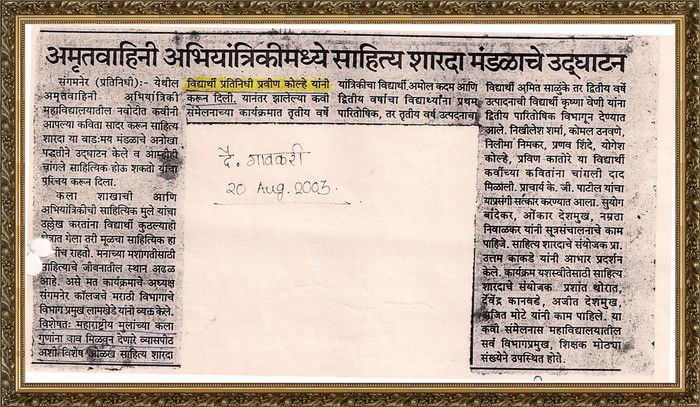 अमृतवाहिनी अभियांत्रिकीमध्ये साहित्य शारदा मंडळाचे उद्घाटन
संगमनेर (प्रतिनिधी):- येथील
अमृतवाहिनी अभियांत्रिकी
महाविद्यालयातील नवोदीत कवींनी
आपल्या कविता सादर करून साहित्य
शारदा या वाङमय मंडळाचे अनोखा
पद्धतीने उद्घाटन केले व आम्हीही
चांगले साहित्यिक होऊ शकतो याचा
परिचय करून दिला.
कला शाखाची आणि
अभियांत्रिकीची साहित्यिक मुले यांचा
उल्लेख करतांना विद्यार्थी कुठल्याही
गेला तरी मूळचा साहित्यिक हा
तीच राहतो. मनाच्या मशागतीसाठी
साहित्याचे जीवनातील स्थान अढळ
आहे. असे मत कार्यक्रमाचे अध्यक्ष
संगमनेर कॉलजचे मराठी विभागाचे
विभाग प्रमुख लामखेडे यांनी व्यक्त केले.
विशेषतः महाराष्ट्रीय मुलांच्या कला
गुणांना वाव मिळवून देणारे व्यासपीठ
अशी विशेष ओळख साहित्य शारदा
विद्यार्थी प्रतिनिधी प्रवीण कोल्हे यांनी
करून दिली. यानंतर झालेल्या कवी
संमेलनाच्या कार्यक्रमात तृतीय वर्षे
यांत्रिकीचा विद्यार्थी अमोल कदम आणि
द्वितीय वर्षाचा विद्यार्थ्यांना प्रथम
पारितोषिक, तर तृतीय वर्ष उत्पादनाचा
दै. गावकरी
20 Aug. 2003.
विद्यार्थी अमित साळुंके तर द्वितीय वर्षे
उत्पादनाची विद्यार्थी कृष्णा वेणी यांना
द्वितीय पारितोषिक विभागून देण्यात
आले. निखीलेश शर्मा, कोमल उनवणे,
नितीमा निमकर, प्रणव शिंदे, योगेश
कोल्हे, प्रविण कातोरे या विद्यार्थी
कवींच्या कवितांना चांगली दाद
मिळाली. प्राचार्य के. जी. पाटील यांचा
याप्रसंगी सत्कार करण्यात आला. सुयोग
बांदेकर, ओंकार देशमुख, नम्रता
निंबाळकर यांनी सूत्रसंचालनाचे काम
पाहिजे. साहित्य शारदाचे संयोजक प्रा.
उत्तम काकडे यांनी आभार प्रदर्शन
केले. कार्यक्रम यशस्वीतेसाठी साहित्य
शारदाचे संयोजक प्रशांत थोरात,
देवेंद्र कानवडे, अजीत देशमुख,
अजित मोटे यांनी काम पाहिले. या
कवी संमेलनास महाविद्यालयातील
सर्व विभागप्रमुख, शिक्षक मोठ्या
संख्येने उपस्थित होते.